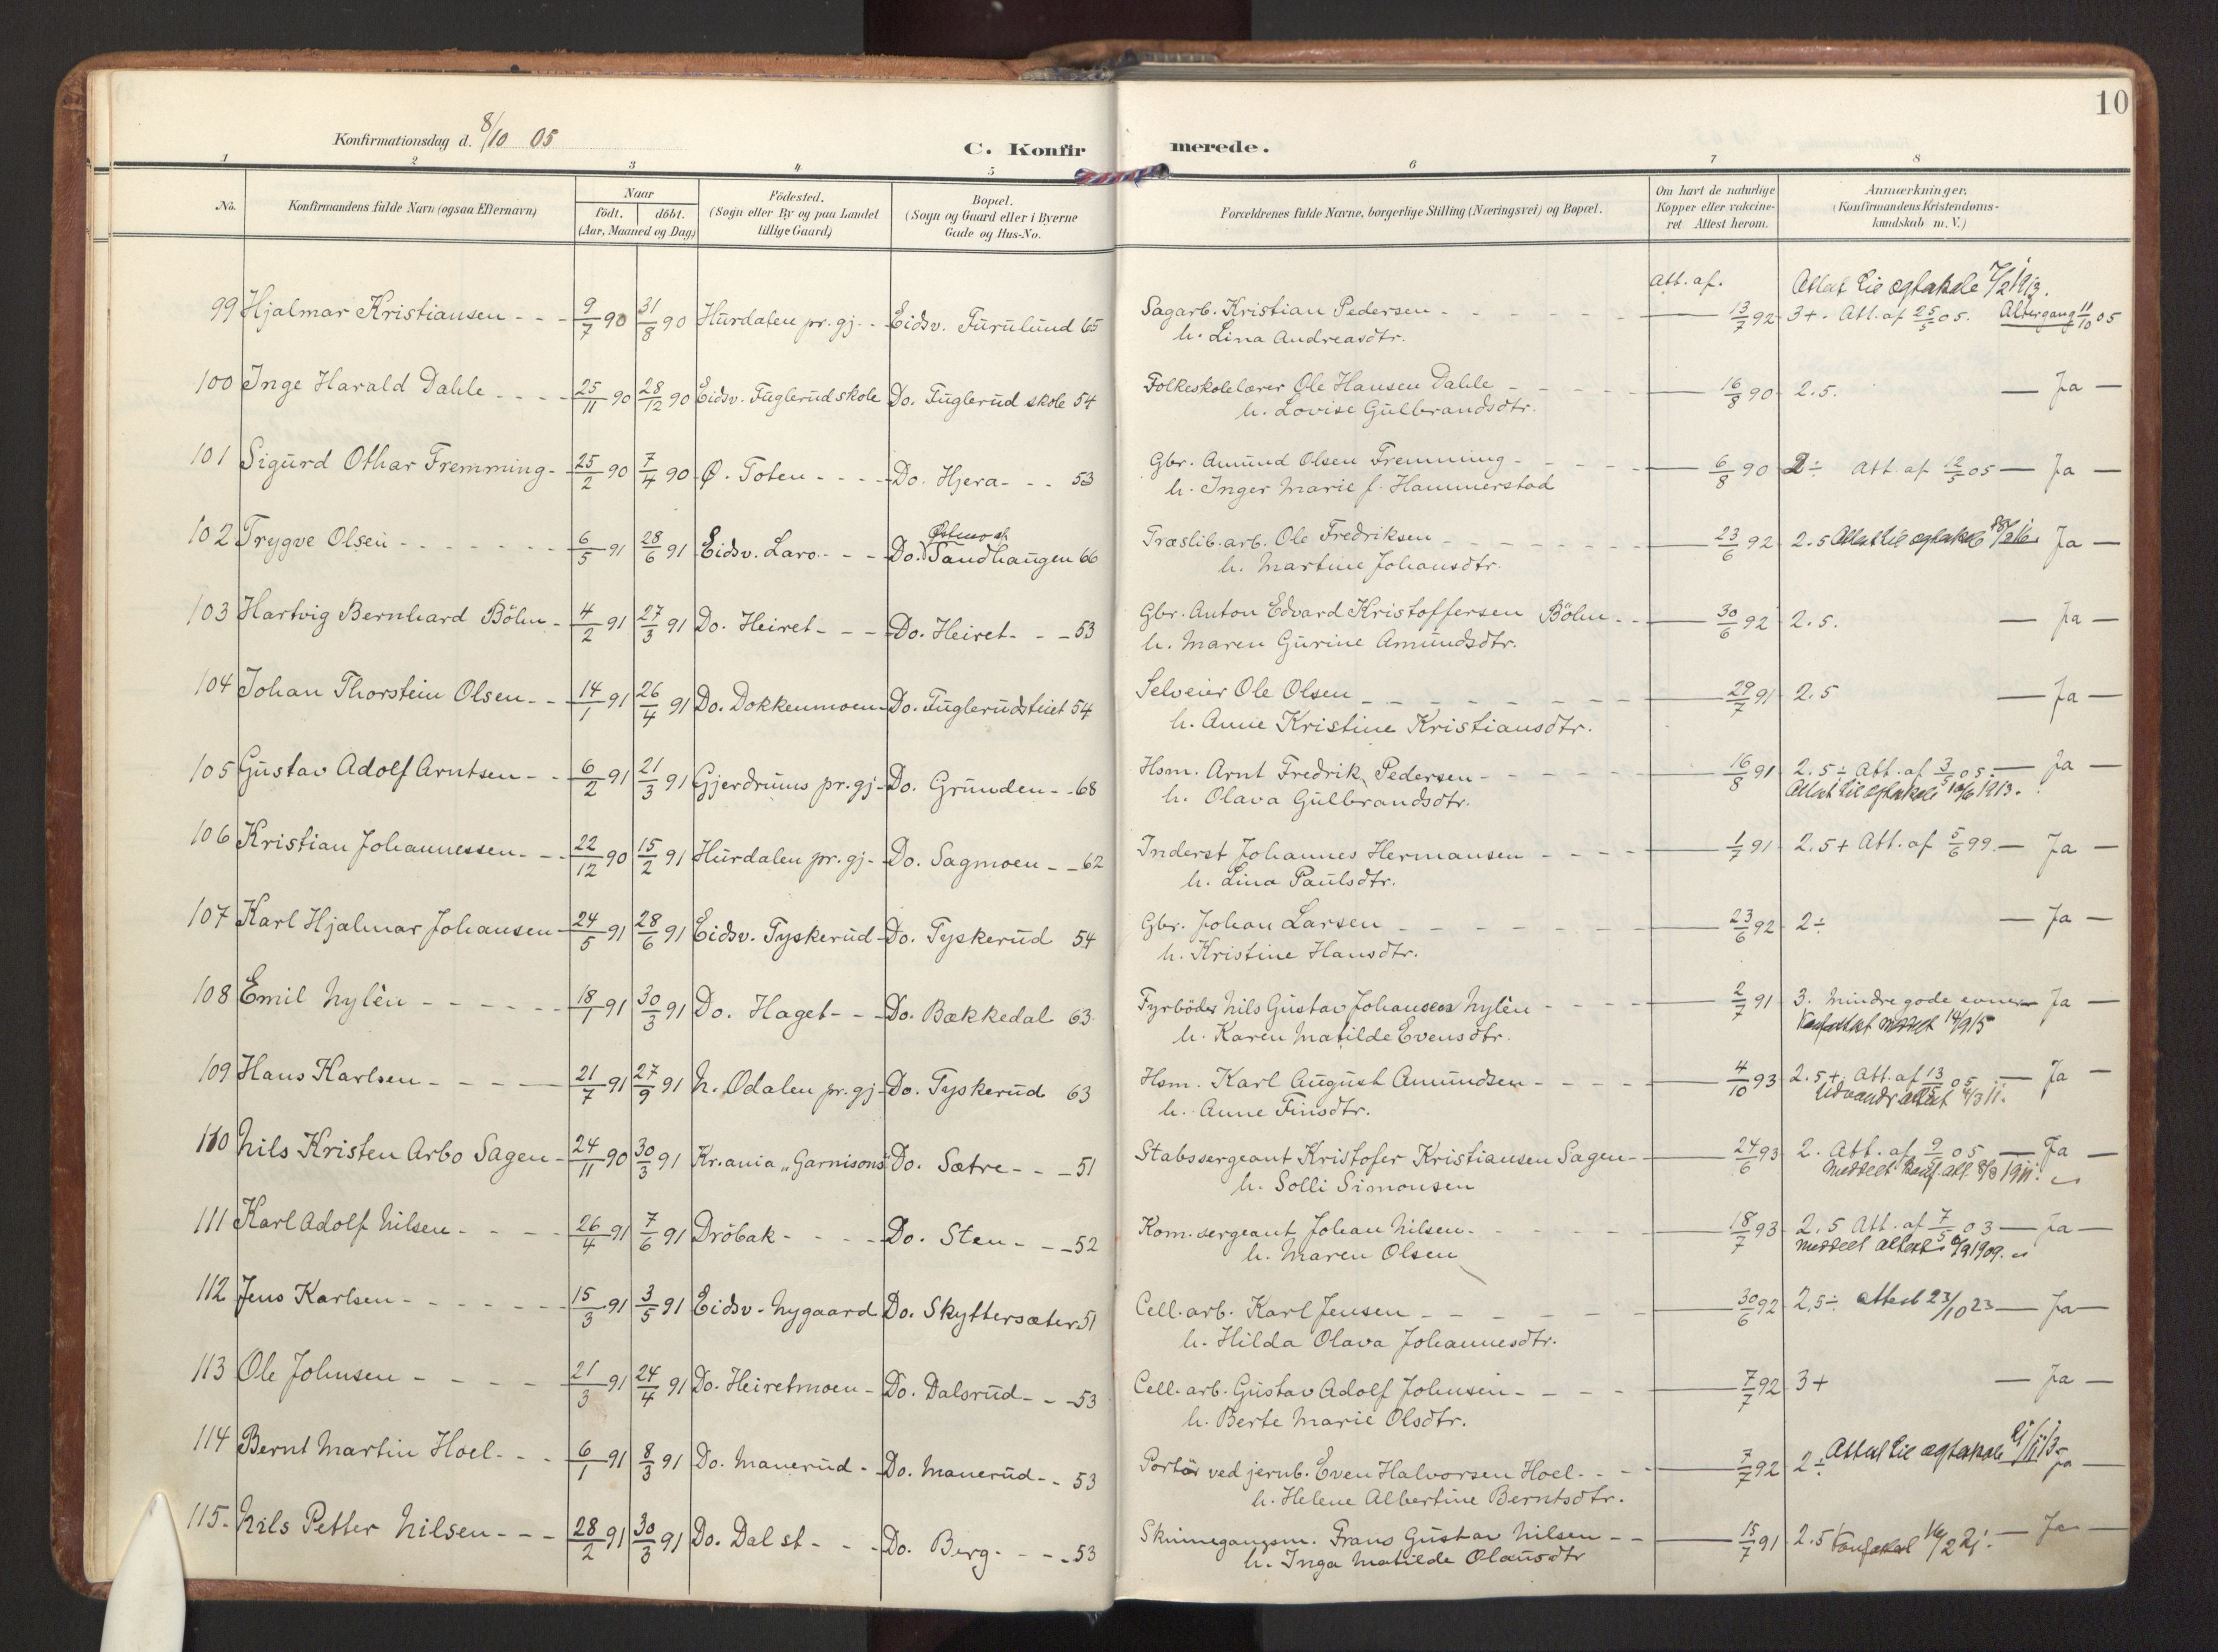 10
Konfirmationsdag d. 8/10 05
C. Konfirmerede.
1 2 3 4 5 6 7 8
No.
Konfirmandens fulde Navn (ogsaa Efternavn)
Naar
födt. döbt.
(Aar, Maaned og Dag)
Födested.
(Sogn eller By og paa Landet
tillige Gaard)
Bopæl.
(Sogn og Gaard eller i Byerne
Gade og Hus-No.
Forældrenes fulde Navne, borgerlige Stilling (Næringsvei) og Bopæl.
Om havt de naturlige
Kopper eller vakcine-
ret Attest herom.
Anmærkninger.
(Konfirmandens Kristendoms-
kundskab m. V.)
Att. af. Attest til ægteskab 7/2 1913.
99 Hjalmar Kristiansen - - - 9/7 90 31/8 90 Hurdalen pr. gj. - - Eidsv. Furulund 65 Sagarb. Kristian Pedersen - - - 13/7 92 3+. Att. af 25/5 05. Altergang 11/10 05
h. Lina Andreasdtr.
100 Inge Harald Dahle - - - 25/11 90 28/12 90 Eidsv. Fuglerud skole Do. Fuglerud skole 54 Folkeskolelærer Ole Hansen Dahle - - - 16/8 90 2.5. — Ja —
h. Lovise Gulbrandsdtr.
101 Sigurd Othar Fremming - 25/2 90 7/4 90 Ø. Toten - - - Do. Hjera - - 53 Gbr. Amund Olsen Fremming - - - 6/8 90 2÷ Att. af 12/5 05 — Ja —
h. Inger Marie f. Hammerstad
102 Trygve Olsen - - - 6/5 91 28/6 91 Eidsv. Laro - - - Do. Sandhaugen 66 Træslib. arb. Ole Fredriksen - - - 23/6 92 2.5 Attest til ægteskab Ja —
h. Martine Johansdtr.
103 Hartvig Bernhard Böhn - 4/2 91 27/3 91 Do. Heiret - - - Do. Heiret - - 53 Gbr. Anton Edvard Kristoffersen Böhn - - 30/6 92 2.5. — Ja —
h. Maren Gurine Amundsdtr.
104 Johan Thorstein Olsen - - 14/1 91 26/4 91 Do. Dokkenmoen - Do. Fuglerudsteiet 54 Selveier Ole Olsen - - - 29/7 91 2.5 — Ja —
h. Anne Kristine Kristiansdtr.
105 Gustav Adolf Arntsen - - 6/2 91 21/3 91 Gjerdrums pr. gj - Do. Grunden - - 68 Hsm. Arnt Fredrik Pedersen - - - 16/8 91 2.5÷ Att. af 3/5 05. — Ja —
h. Olava Gulbrandsdtr. Attest til ægteskab 10/6 1913.
106 Kristian Johannessen - - 22/12 90 15/2 91 Hurdalen pr. gj - Do. Sagmoen - - 62 Inderst Johannes Hermansen - - - 1/7 91 2.5+ Att. af 5/6 99. — Ja —
h. Lina Paulsdtr.
107 Karl Hjalmar Johansen - 24/5 91 28/6 91 Eidsv. Tyskerud - Do. Tyskerud 54 Gbr. Johan Larsen - - - 23/6 92 2÷ — Ja —
h. Kristine Hansdtr.
108 Emil Nylén - - - 18/1 91 30/3 91 Do. Haget - - - Do. Bækkedal 63 Fyrböder Nils Gustav Johansen Nylén - - - 2/7 91 3. Mindre gode evner — Ja —
h. Karen Matilde Evensdtr. 14/9 15
109 Hans Karlsen - - - 21/7 91 27/9 91 N. Odalen pr. gj - Do. Tyskerud 63 Hsm. Karl August Amundsen - - - 4/10 93 2.5+. Att. af 13/5 05 — Ja —
h. Anne Finsdtr. Udvandr. attest 4/3 11.
110 Nils Kristen Arbo Sagen - 24/11 90 30/3 91 Kr.ania „Garnisons" Do. Sætre - - - 51 Stabssergeant Kristofer Kristiansen Sagen - - 24/6 93 2. Att. af 9/5 05 — Ja —
h. Solli Simonsen Meddelt konf. att. 8/8 1911.
111 Karl Adolf Nilsen - - - 26/4 91 7/6 91 Dröbak - - - Do. Sten - - - 52 Kom. sergeant Johan Nilsen - - - 18/7 93 2.5 Att. af 7/5 03 — Ja —
h. Maren Olsen Meddelt attest 6/9 1909.
112 Jens Karlsen - - - 15/3 91 3/5 91 Eidsv. Nygaard Do. Skyttersæter 51 Cell. arb. Karl Jensen - - - 30/6 92 2.5÷. attest 23/10 23 — Ja —
h. Hilda Olava Johannesdtr.
113 Ole Johnsen - - - 21/3 91 24/4 91 Do. Heiretmoen - Do. Dalsrud - - - 53 Cell. arb. Gustav Adolf Johnsen - - - 7/7 92 3+ — Ja —
h. Berte Marie Olsdtr.
114 Bernt Martin Hoel - - - 6/1 91 8/3 91 Do. Manerud - Do. Manerud - - 53 Portör ved jernb. Even Halvorsen Hoel - - - 7/7 92 2÷ Attest til ægteskab Ja —
h. Helene Albertine Berntsdtr.
115. Nils Petter Nilsen - - - 28/2 91 30/3 91 Do. Dal st - - - Do. Berg - - - 53 Skinnegangsm. Frans Gustav Nilsen - - 15/7 91 2.5 — Ja —
h. Inga Matilde Olausdtr